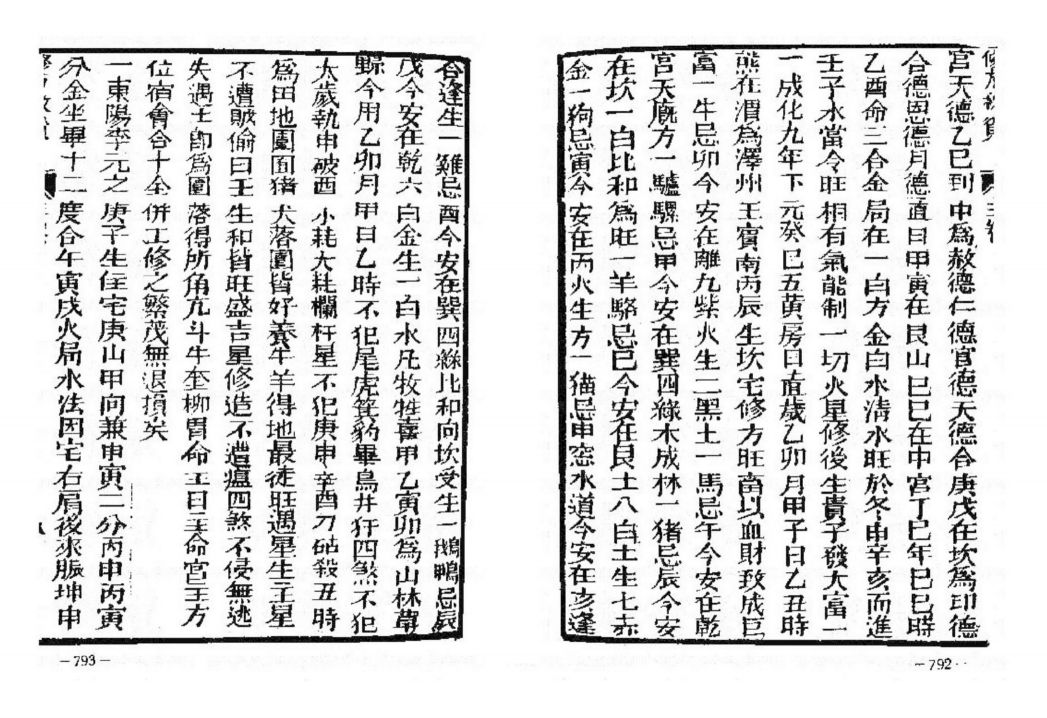 宮天德乙巳到中爲赦德仁德官德天德合庚戌在坎爲印德
合德恩德月德直日甲寅在艮山巳巳在中宮丁巳年巳巳時
乙酉命三合金局在一白方金白水淸水旺於冬申辛亥而進
壬子水當令旺相有氣能制一切火星修後生貴子發大富一
一成化九年下元癸巳五黃房日直歲乙卯月甲子日乙丑時
能在渭爲澤州王賓南丙辰生坎宅修方旺畜以血財致成巨
富一牛忌卯今安在離九紫火生二黑土一馬忌午今安在乾
宮天廐方一驢騾忌甲今安在巽四綠木成林一猪忌辰今安
在坎一白比和爲旺一羊駱忌巳今安在艮土八白土生七赤
金一狗忌寅今安在丙火生方一猫忌申窓水道今安在亥逢
谷逢生一雞忌酉今安在巽四綠比和向坎受生一鵝鴨忌辰
戌今安在乾六白金生一白水凡牧牲喜甲乙寅卯爲山林草
野今用乙卯月甲日乙時不犯尾虎箕豹畢烏井犴四煞不犯
太歲執申破酉小耗大耗欄杆星不犯庚申辛酉刀砧殺丑時
爲田地園面猪犬落圍皆好養牛羊得地最徒旺遇星生主星
不遭賊偷日王生和皆旺盛吉星修造不遭瘟四煞不侵無逃
失遇王卽爲圍落得所角亢斗牛奎柳胃命王日主命宮王方
位宿會合十全併工修之繁茂無退損矣
一東陽李元之庚子生住宅庚山甲向兼申寅二分丙申丙寅
分金坐畢十二度合午寅戌火局水法因宅右肩後來脈坤申
-792-
-793-